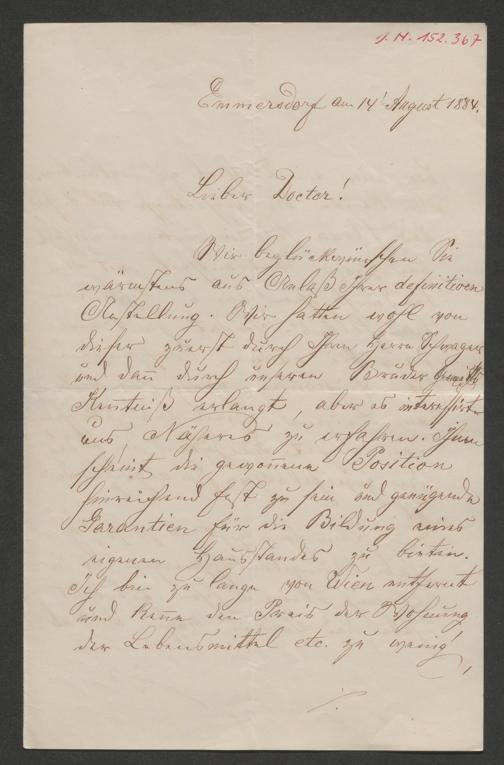 J.N. 152.367
Emmersdorf am 14t August 1884.
Lieber Doctor!
Wir beglückwünschen Sie
wärmstens aus Anlaß Ihrer definitiven
Anstellung. Wir hatten wohl von
dieser zuerst durch Ihren Herrn Schwager
und dann durch unseren Bruder
Kenntniß erlangt, aber es interessirte
uns, Näheres zu erfahren. Ihnen
scheint die gewonnene Position
hinreichend fest zu sein und genügende
Garantien für die Bildung eines
eigenen Hausstandes zu bieten.
Ich bin zu lange von Wien entfernt
und kenne den Preis der Wohnung
der Lebensmittel etc. zu wenig,